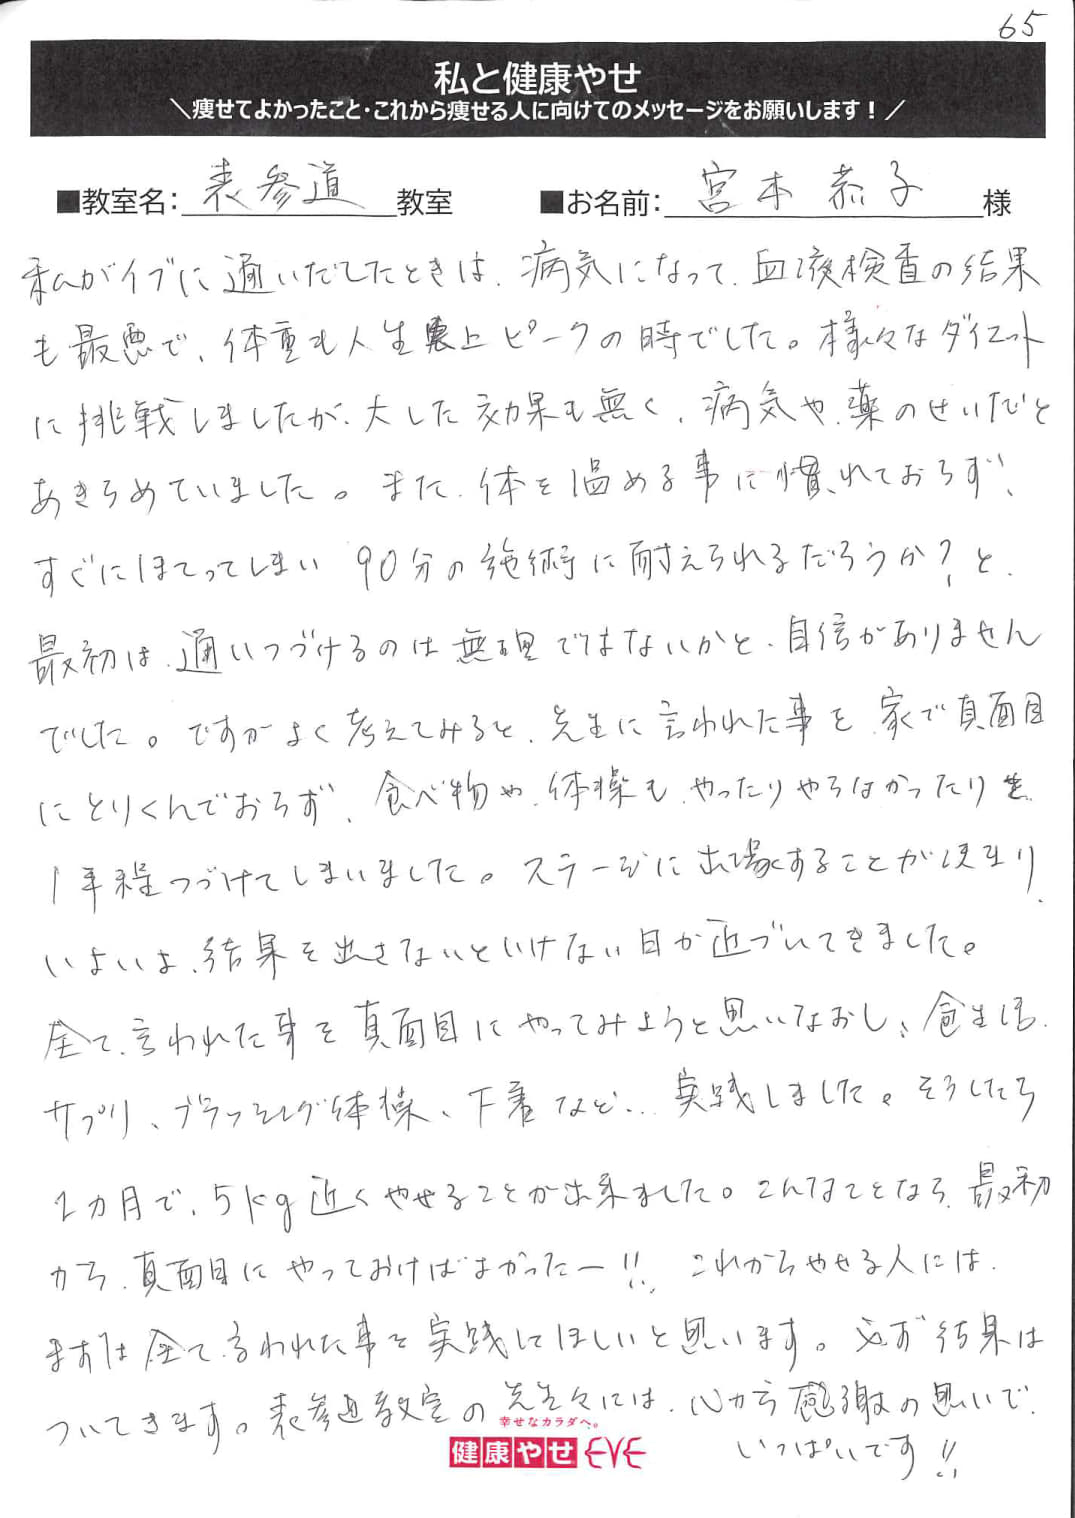 65
私と健康やせ
＼痩せてよかったこと・これから痩せる人に向けてのメッセージをお願いします！／
■教室名：表参道教室 ■お名前：宮本恭子様
私がイブに通いだしたときは、病気になって、血液検査の結果
も最悪で、体重も人生史上ピークの時でした。様々なダイエット
に挑戦しましたが、大した効果も無く、病気や、薬のせいだと
あきらめていました。また、体を温める事に慣れておらず、
すぐにほてってしまい 90分の施術に耐えられるだろうか？と、
最初は、通いつづけるのは無理ではないかと、自信がありません
でした。ですがよく考えてみると、先生に言われた事を、家で真面目
にとりくんでおらず、食べ物や、体操も、やったりやらなかったり
1年程つづけてしまいました。ステージに出場することが決まり、
いよいよ、結果を出さないといけない日が近づいてきました。
全て、言われた事を真面目にやってみようと思いなおし、食生活、
サプリ、ブラッシング体操、下着など… 実践しました。そうしたら
2カ月で、5kg近くやせることが出来ました。こんなことなら、最初
から、真面目にやっておけばよかったー!! これからやせる人には、
まずは全て、言われた事を実践してほしいと思います。必ず結果は
ついてきます。表参道教室の先生々には、心から感謝の思いで、
いっぱいです!!
幸せなカラダへ。
健康やせ EVE